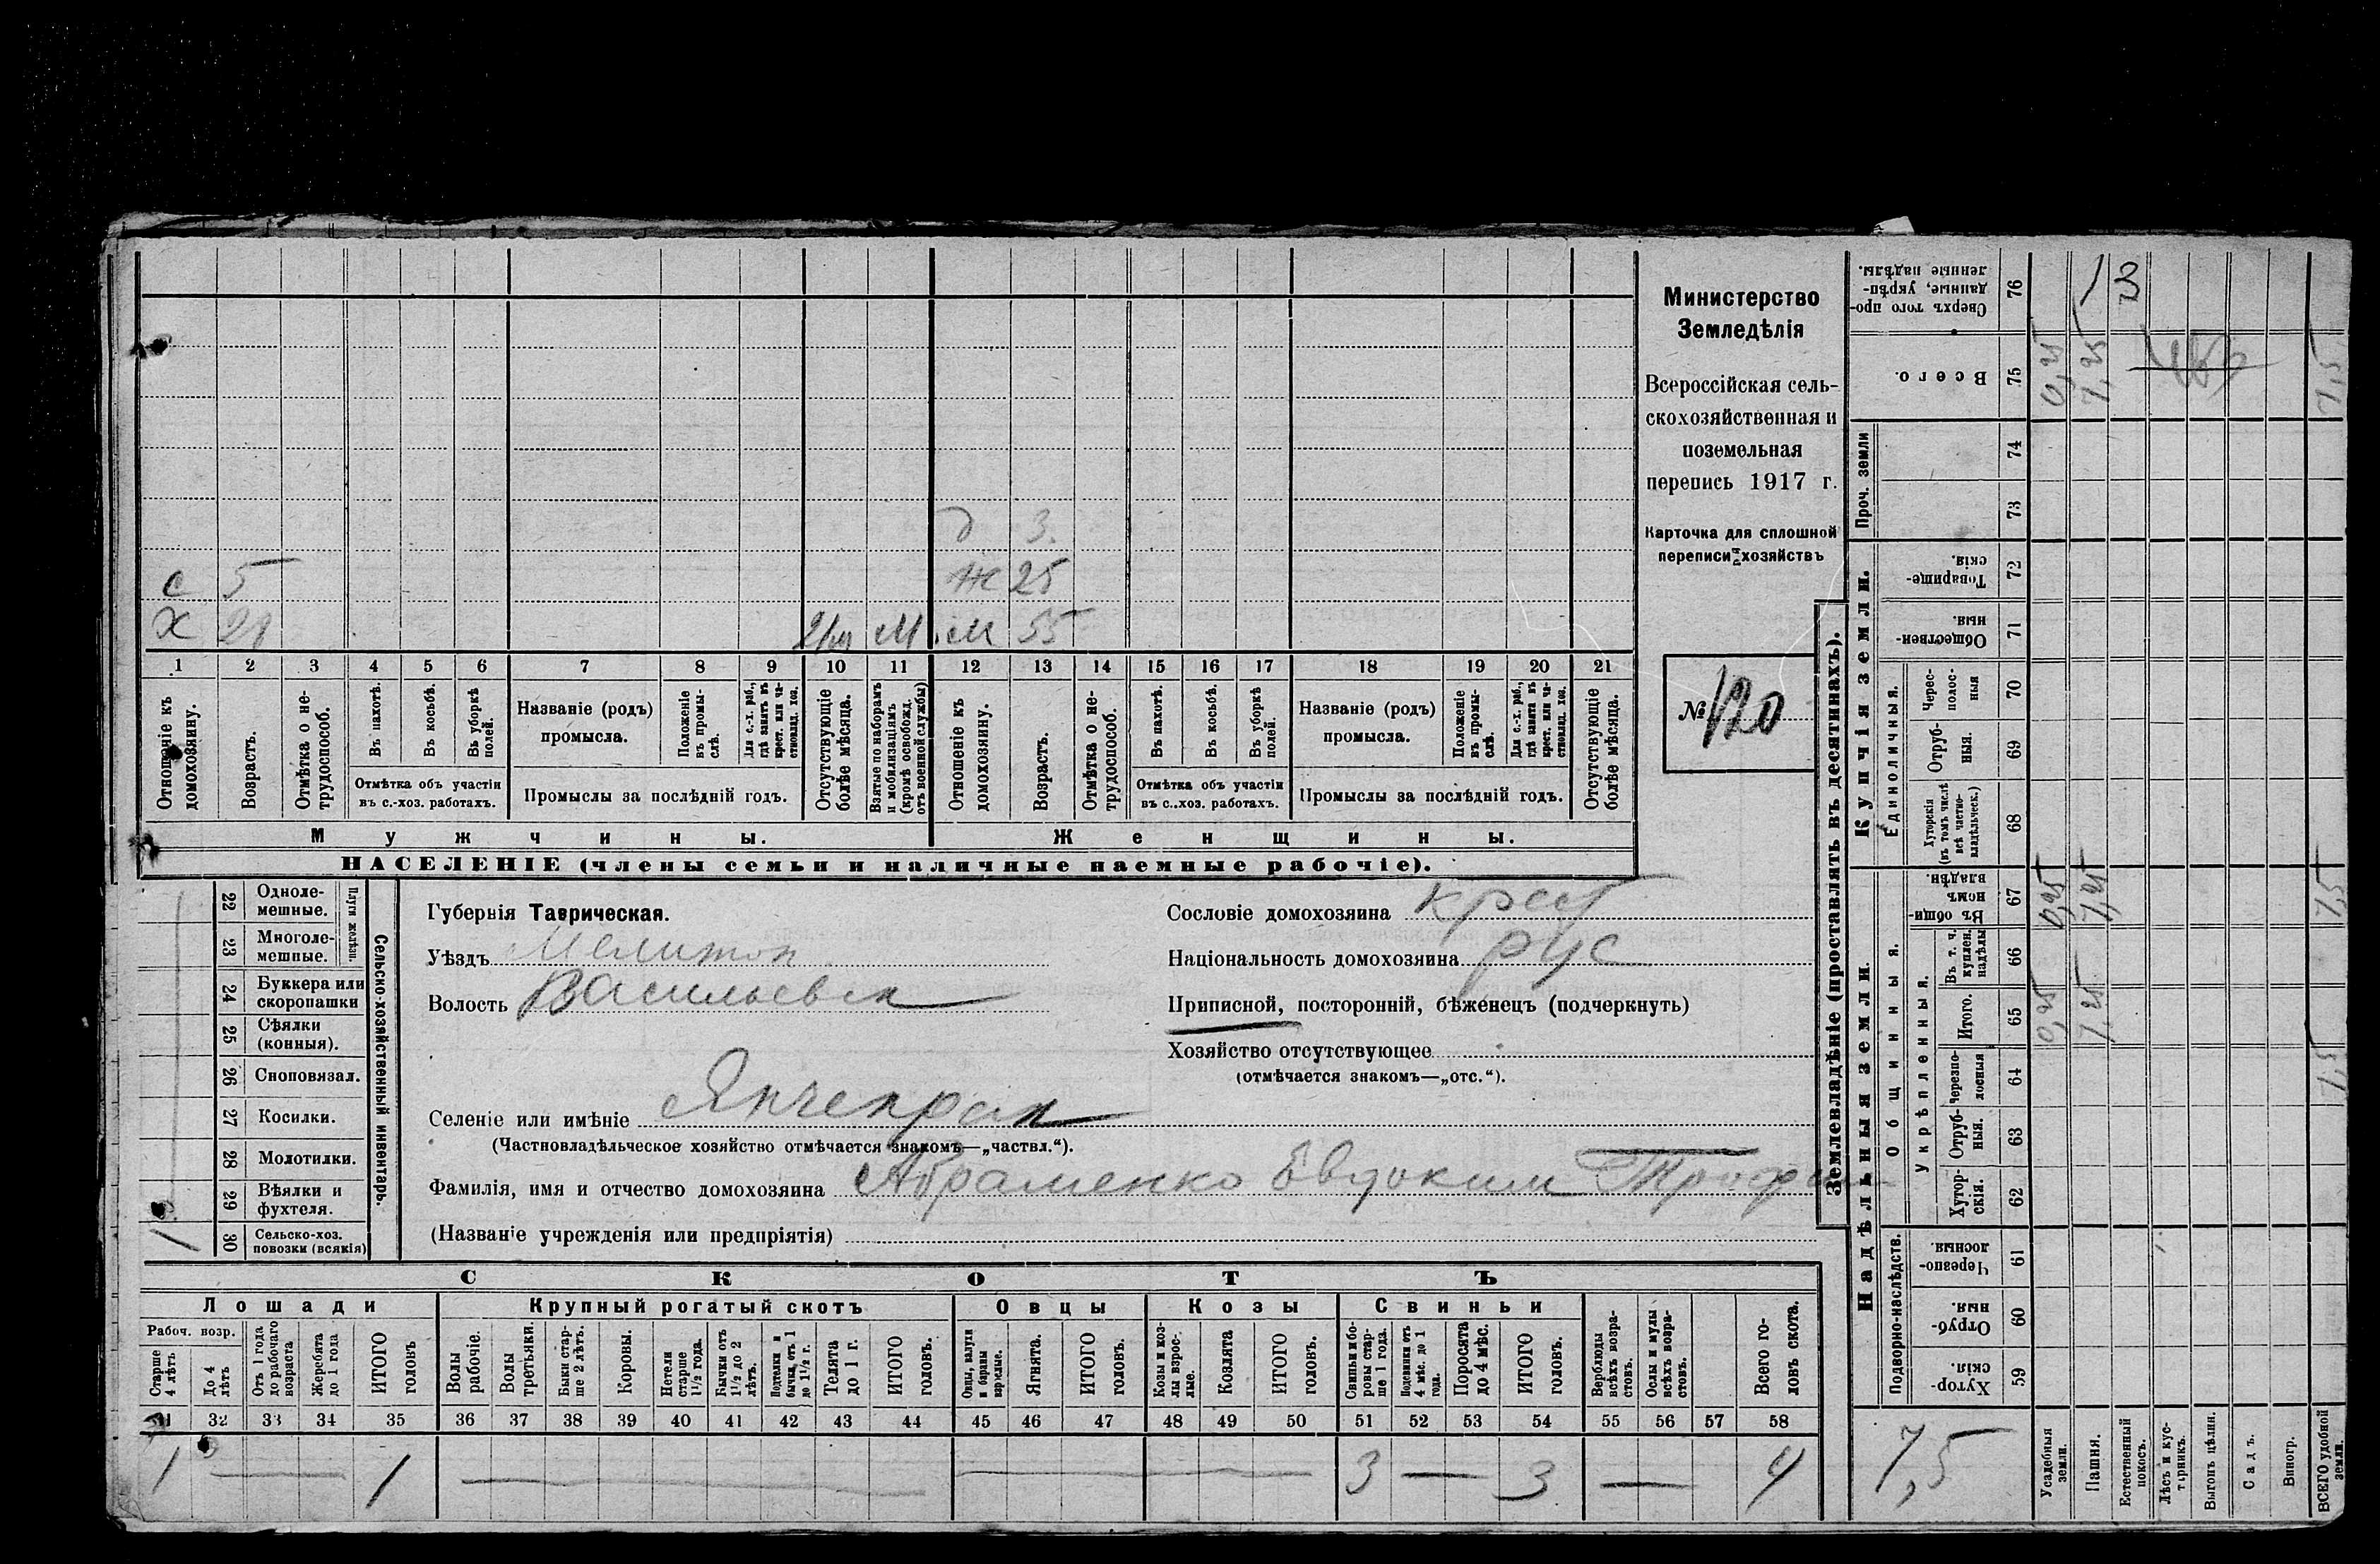 Министерство
Земледѣлія
Всероссійская сель-
скохозяйственная и
поземельная
перепись 1917 г.
Карточка для сплошной
переписи хозяйствъ
№ 120
д 3.
с 5 ж 25
х 21 М м 55
1 2 3 4 5 6 7 8 9 10 11 12 13 14 15 16 17 18 19 20 21
Отношеніе къ домохозяину.
Возрастъ.
Отмѣтка о не-трудоспособ.
Въ пахотѣ.
Въ косьбѣ.
Въ уборкѣ полей.
Отмѣтка объ участіи
въ с.-хоз. работахъ.
Названіе (родъ)
промысла.
Положеніе въ промы-слѣ.
Для с.-х. раб., гдѣ занятъ въ крест. или ча-стновлад. хоз.
Промыслы за послѣдній годъ.
Отсутствующіе болѣе мѣсяца.
Взятые по наборамъ и мобилизаціямъ (кромѣ освобожд. отъ военной службы)
Отношеніе къ домохозяину.
Возрастъ.
Отмѣтка о не-трудоспособ.
Въ пахотѣ.
Въ косьбѣ.
Въ уборкѣ полей.
Отмѣтка объ участіи
въ с..хоз. работахъ.
Названіе (родъ)
промысла.
Положеніе въ промы-слѣ.
Для с.-х. раб., гдѣ занята въ крест. или ча-стновлад. хоз.
Промыслы за послѣдній годъ.
Отсутствующіе болѣе мѣсяца.
Мужчины.
Женщины.
НАСЕЛЕНІЕ (члены семьи и наличные наемные рабочіе).
22 Одноле-мешные.
23 Многоле-мешные.
Плуги желѣзн.
24 Буккера или скоропашки
25 Сѣялки (конныя).
26 Сноповязал.
27 Косилки.
28 Молотилки.
29 Вѣялки и фухтеля.
30 Сельско-хоз. повозки (всякія)
1
Сельско-хозяйственный инвентарь.
Губернія Таврическая.
Уѣздъ Мелитоп
Волость Васильевск
Селеніе или имѣніе Янчекрак
(Частновладѣльческое хозяйство отмѣчается знакомъ—„частвл.“).
Фамилія, имя и отчество домохозяина Абраменко Евдоким Трофим
(Названіе учрежденія или предпріятія)
Сословіе домохозяина крест
Національность домохозяина рус
Приписной, посторонній, бѣженецъ (подчеркнуть)
Хозяйство отсутствующее
(отмѣчается знакомъ—„отс.“).
СКОТЪ
Лошади
Крупный рогатый скотъ
Овцы
Козы
Свиньи
Рабоч. возр.
Старше 4 лѣтъ
До 4 лѣтъ
Отъ 1 года до рабочаго возраста
Жеребята до 1 года
ИТОГО головъ
Волы рабочіе.
Волы третьяки.
Быки стар-ше 2 лѣтъ.
Коровы.
Нетели старше 1½ года.
Бычки отъ 1½ до 2 лѣтъ.
Подтелки и бычки, отъ 1 до 1½ г.
Телята до 1 г.
ИТОГО головъ.
Овцы, валухи и бараны взрослые.
Ягнята.
ИТОГО головъ.
Козы и коз-лы взрос-лые.
Козлята
ИТОГО головъ.
Свиньи и бо-ровы стар-ше 1 года.
Подсвинки отъ 4 мѣс. до 1 года.
Поросята до 4 мѣс.
ИТОГО головъ.
Верблюды всѣхъ возра-стовъ.
Ослы и мулы всѣхъ возра-стовъ.
Всего го-ловъ скота.
31 32 33 34 35 36 37 38 39 40 41 42 43 44 45 46 47 48 49 50 51 52 53 54 55 56 57 58
1 — 1 — — 3 — 3 — 4
Землевладѣніе (проставлять въ десятинахъ).
Надѣльныя земли.
Купчія земли.
Проч. земли
Подворно-наслѣдств.
Общинныя.
Укрѣпленныя.
Единоличныя.
Хутор-скія. 59
Отруб-ныя. 60
Черезпо-лосныя. 61
Хутор-скія. 62
Отруб-ныя. 63
Черезпо-лосныя 64
Итого. 65
Въ т. ч. куплен. надѣлы 66
Въ общи-номъ владѣн. 67
Хуторскія (въ томъ числѣ всѣ частно-владѣльческ.) 68
Отруб-ныя. 69
Черес-полос-ныя 70
Обществен-ныя. 71
Товарище-скія. 72
73
74
Всего. 75
Сверхъ того про-данные, укрѣп-ленные надѣлы. 76
Усадебныя земли.
Пашня.
Естественный покосъ.
Лѣсъ и кус-тарникъ.
Выгонъ цѣлин.
Садъ.
Виногр.
ВСЕГО удобной земли.
7,5
0,25 7,25 7,5
0,25 7,25 7,5
0,25 7,25 7,5